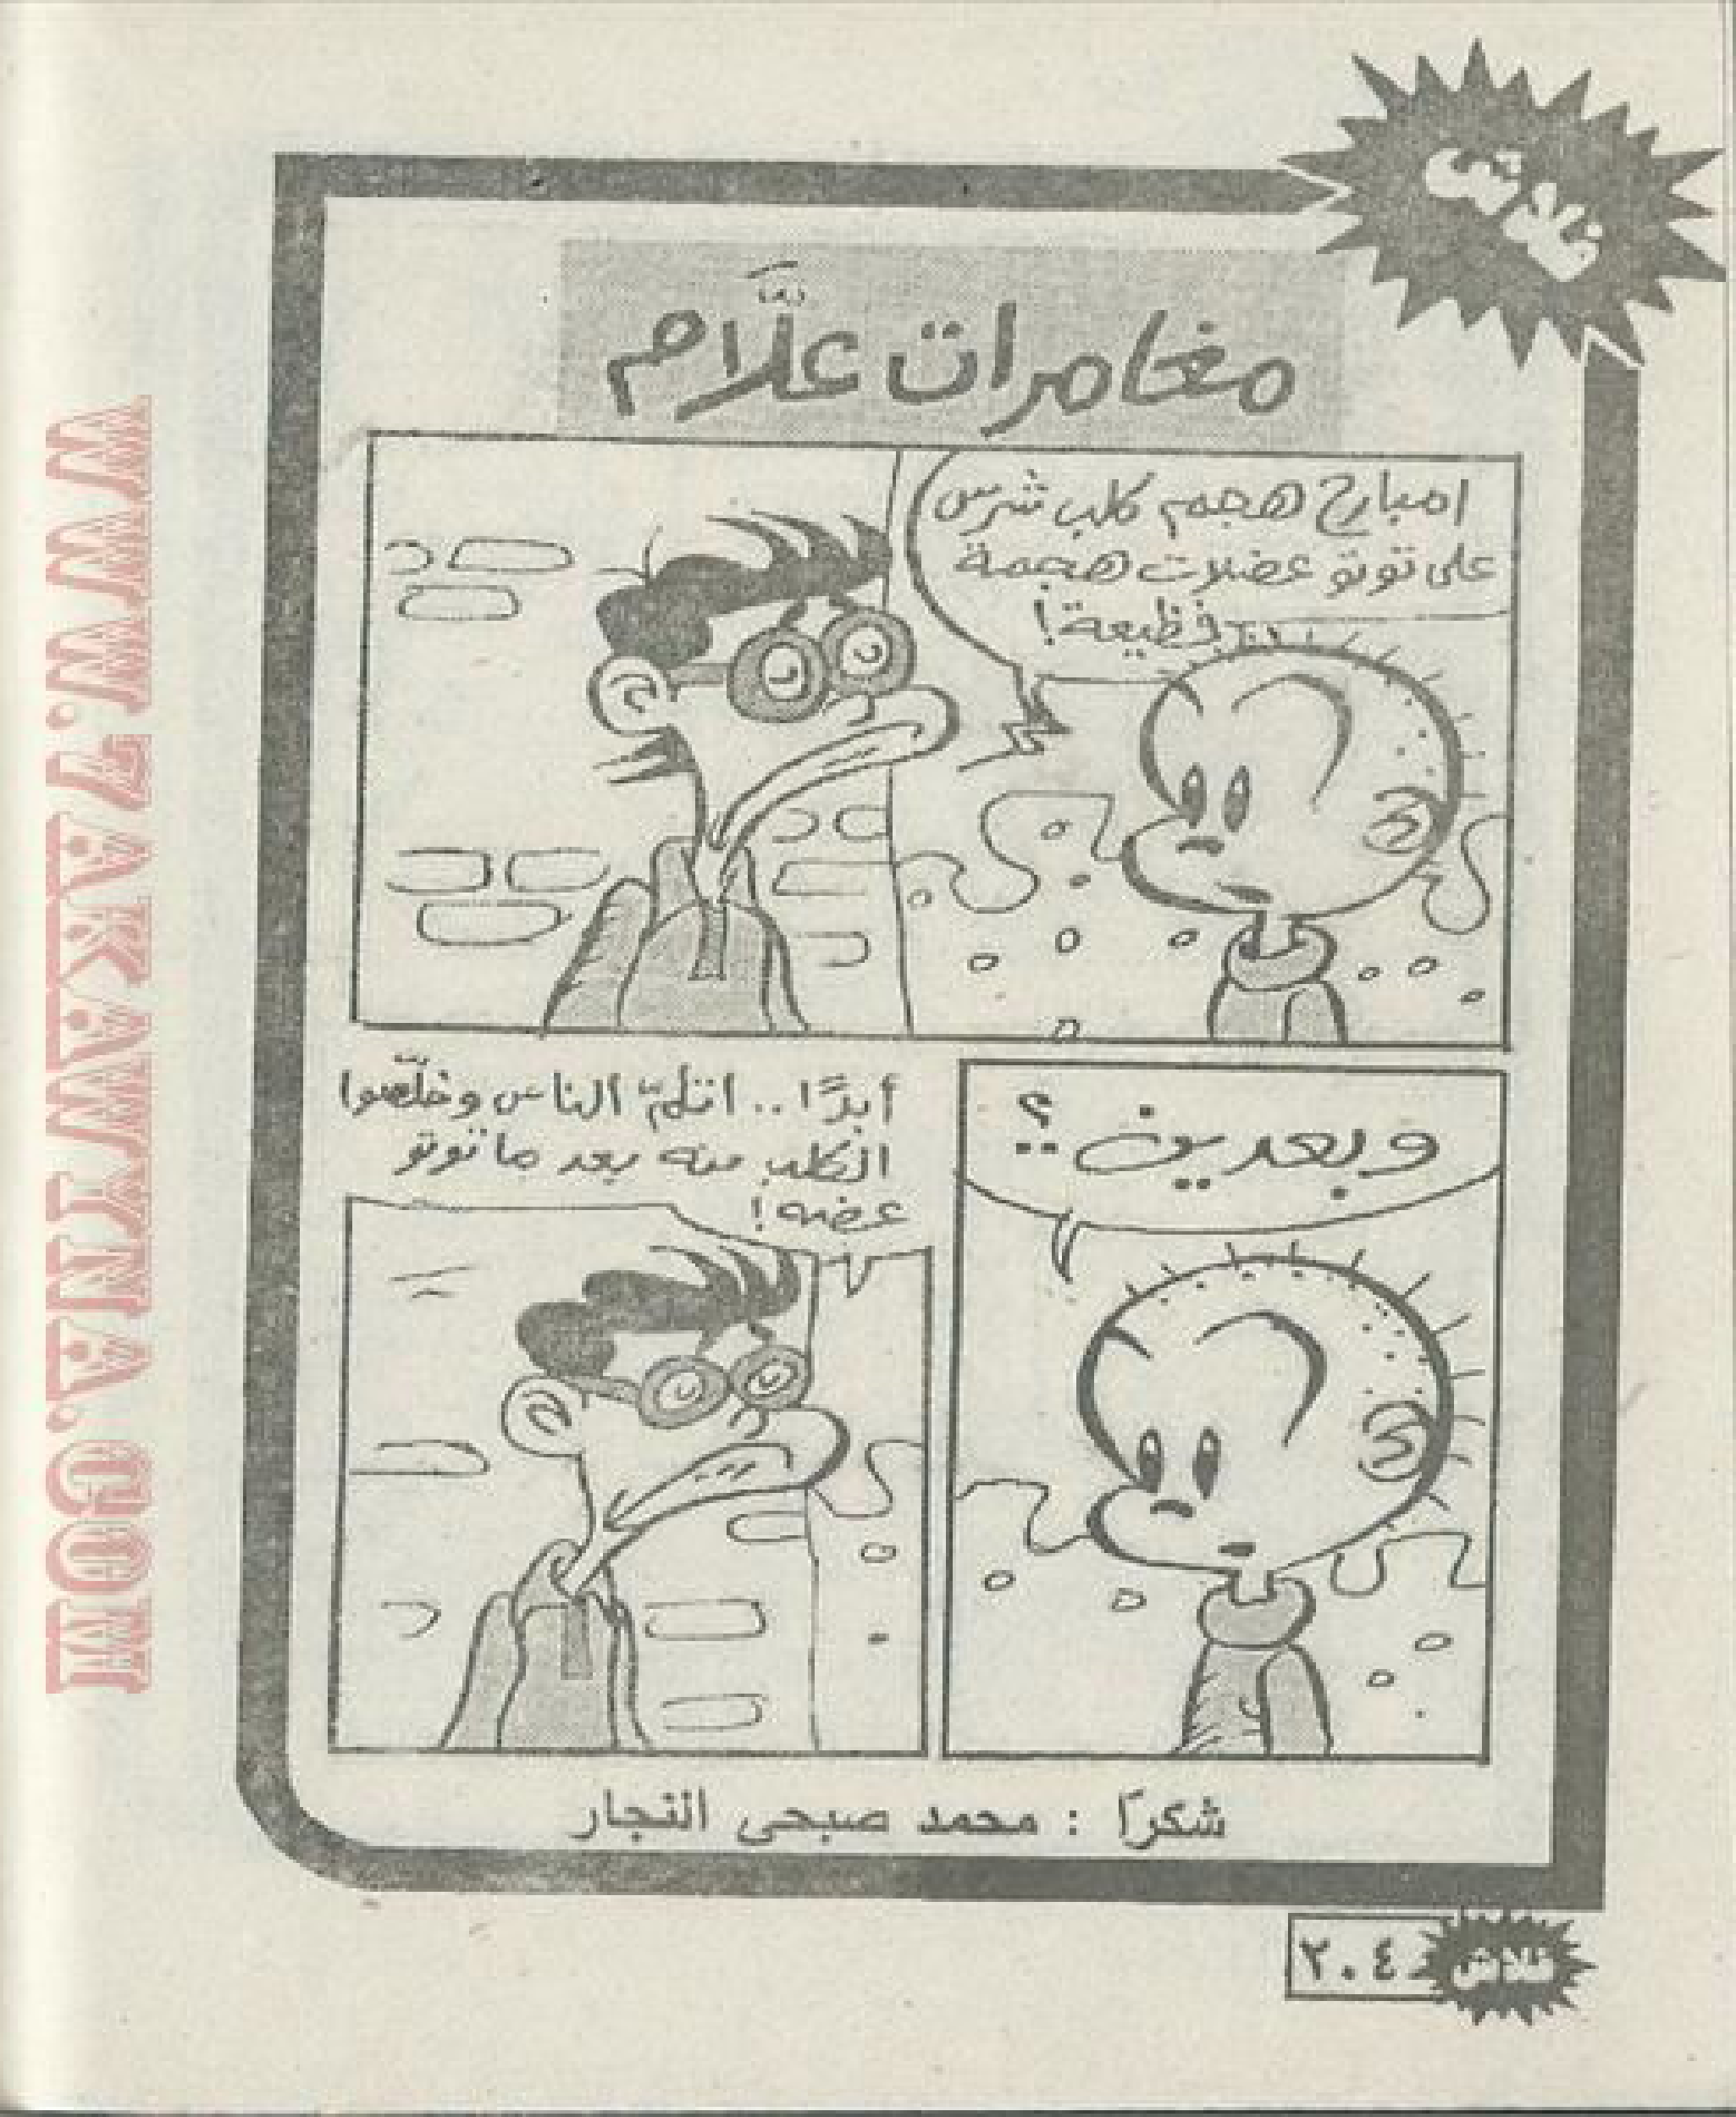 فلاش
مغامرات علَّام
امبارح هجم كلب شرس
على توتو عضلات هجمة
فظيعة!
وبعدين؟
أبدًا.. اتلمّ الناس وخلّصوا
الكلب منه بعد ما توتو
عضه!
شكرًا : محمد صبحى النجار
فلاش ٢٠٤
WWW.7AKAWITNA.COM